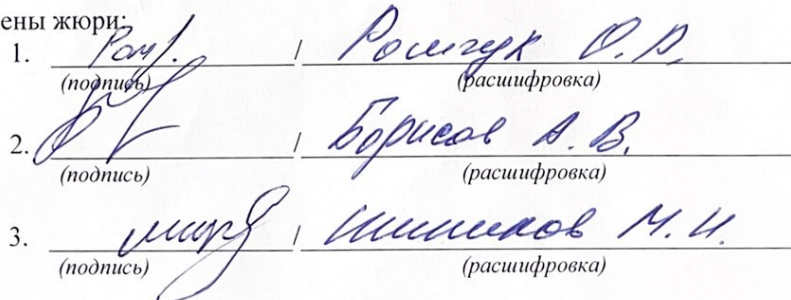 ены жюри:
1. / О. Р.
(подпись) (расшифровка)
2. / Борисов А. В.
(подпись) (расшифровка)
3. / М. И.
(подпись) (расшифровка)